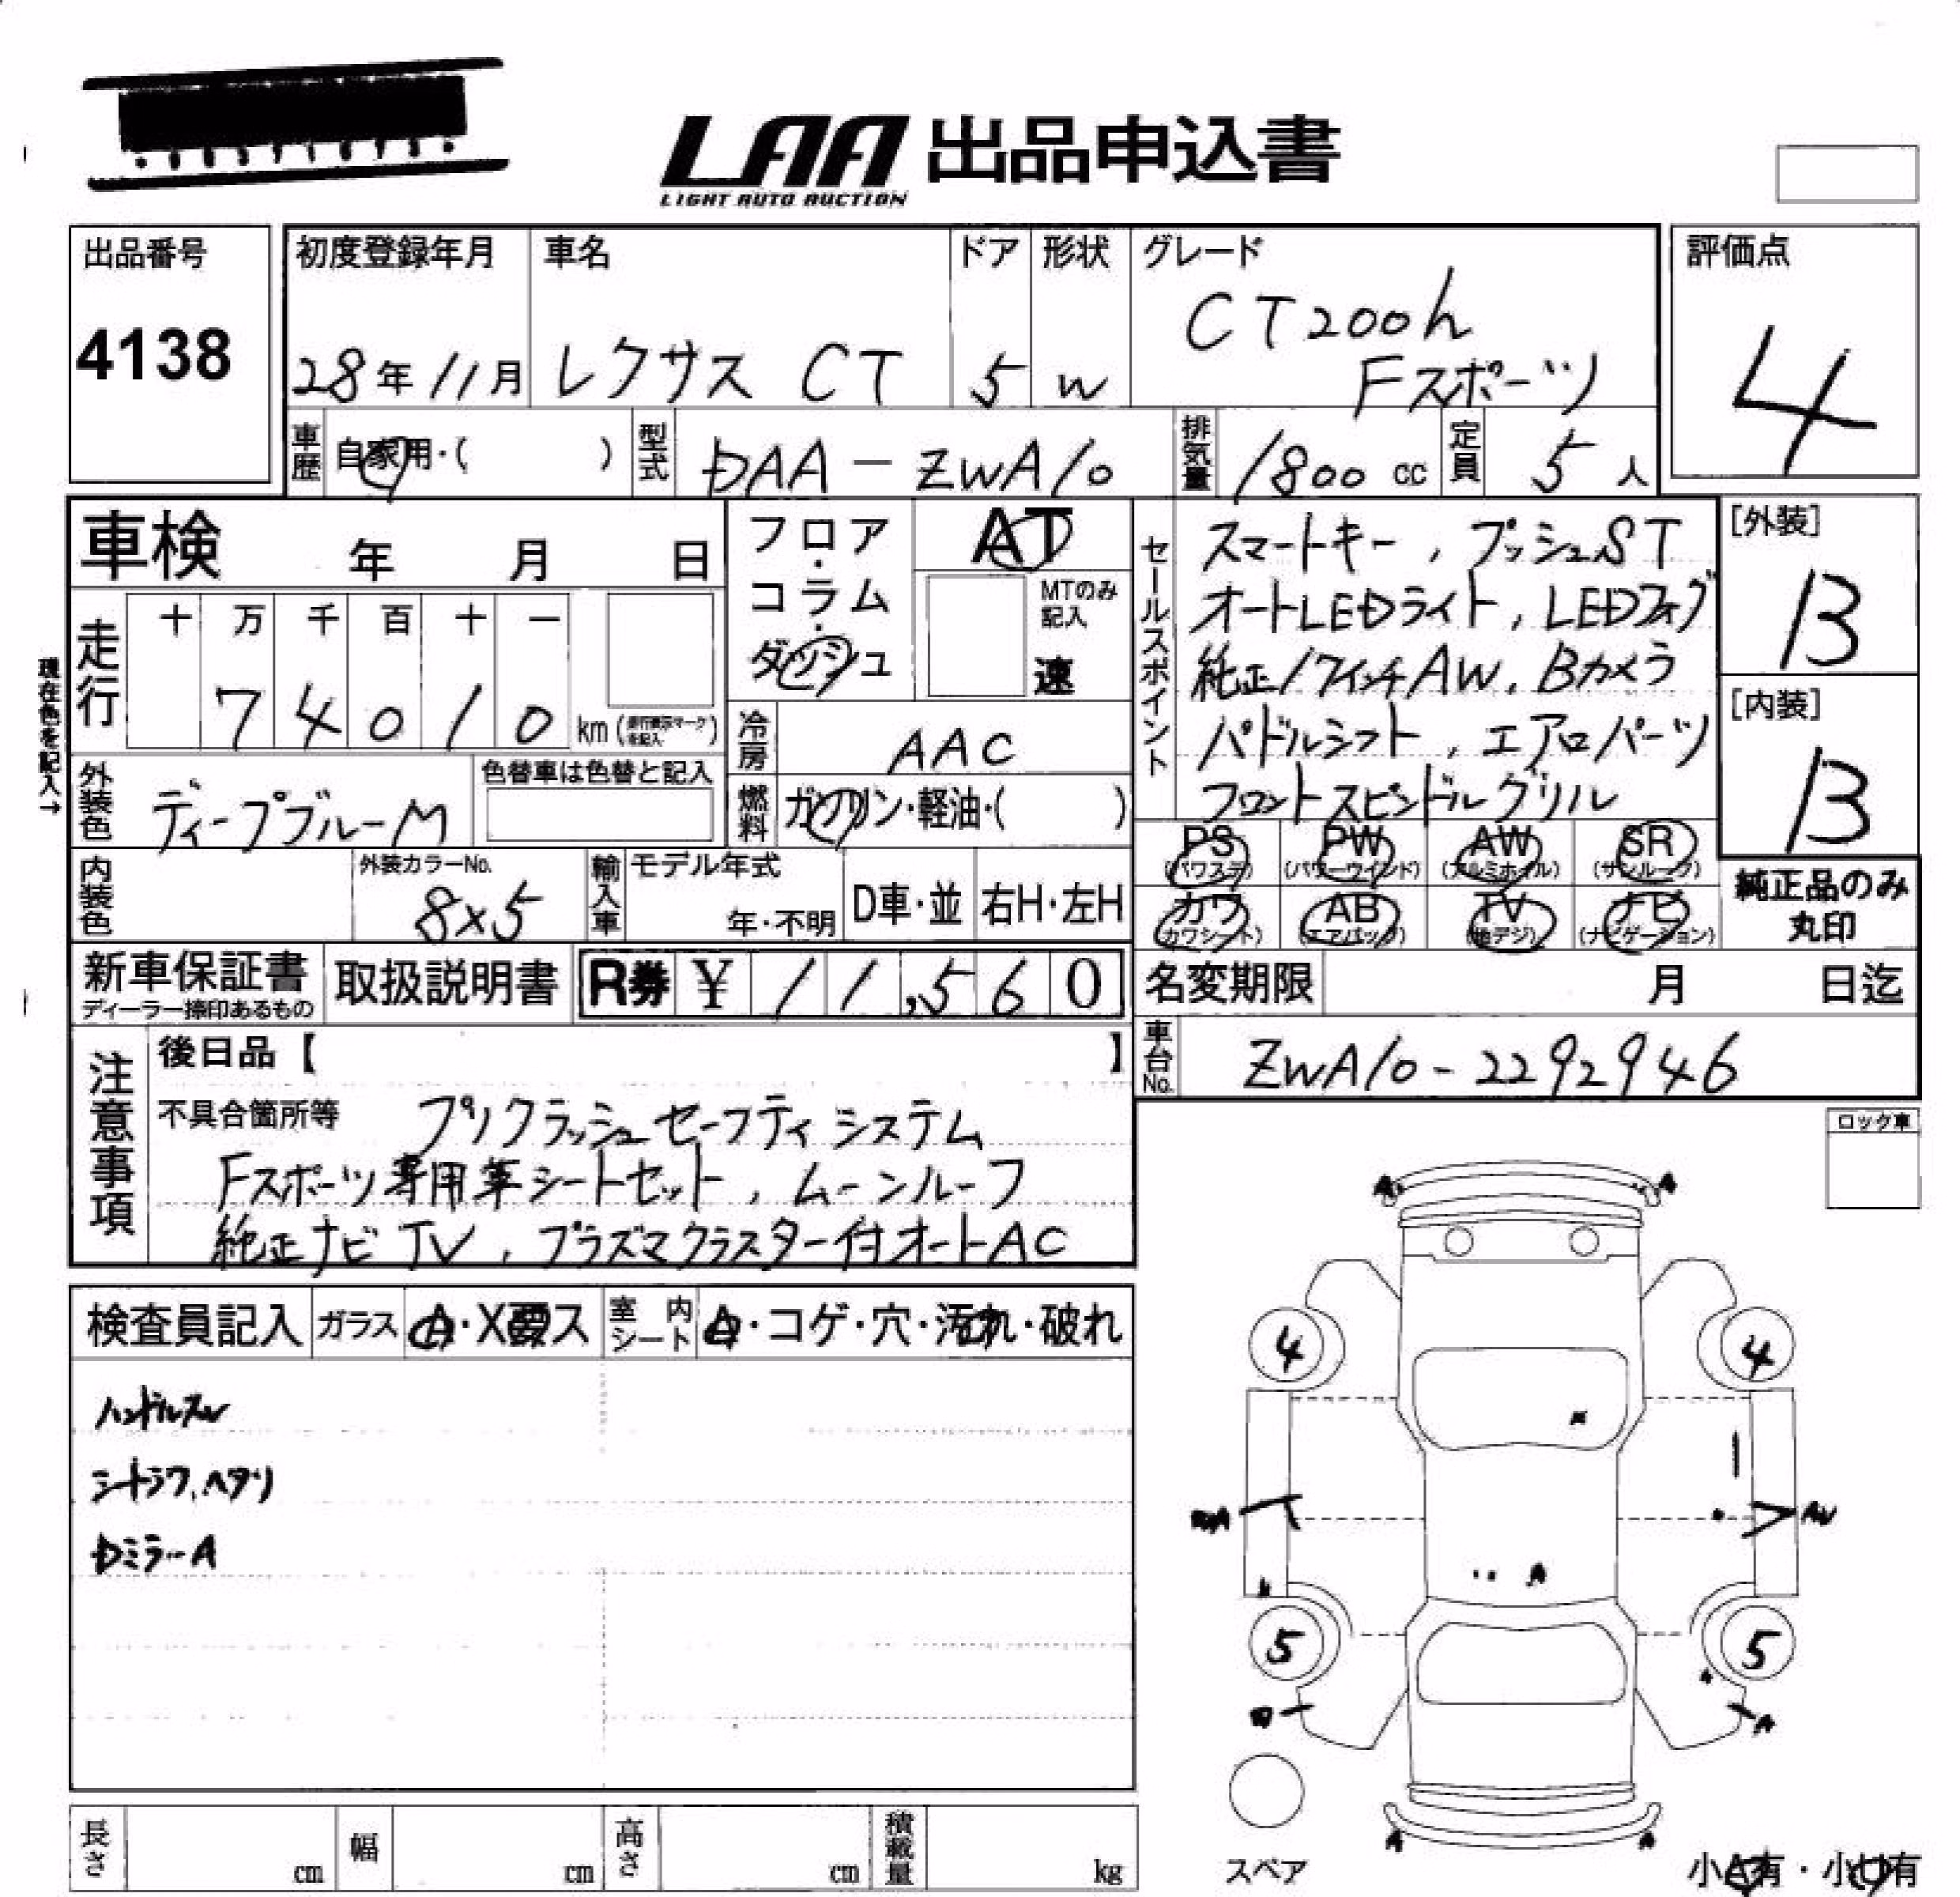 LAA 出品申込書
LIGHT AUTO AUCTION
出品番号
4138
初度登録年月
28年11月
車名
レクサス CT
ドア
5
形状
W
グレード
CT200h
Fスポーツ
評価点
4
車歴
自家用・( )
型式
DAA-ZWA10
排気量
1800 cc
定員
5 人
車検 年 月 日
フロア・コラム・ダッシュ
AT
MTのみ記入
速
セールスポイント
スマートキー, プッシュST
オートLEDライト, LEDフォグ
純正17インチAW, Bカメラ
パドルシフト, エアロパーツ
フロントスピンドルグリル
[外装]
B
[内装]
B
現在色を記入→
走行
十 万 千 百 十 一
7 4 0 1 0 km
冷房
AAC
外装色
ディープブルーM
色替車は色替と記入
燃料
ガソリン・軽油・( )
PS (パワステ)
PW (パワーウインド)
AW (アルミホイル)
SR (サンルーフ)
カワ (カワシート)
AB (エアバック)
TV (地デジ)
ナビ (ナビゲーション)
純正品のみ
丸印
内装色
外装カラーNo.
8X5
輸入車
モデル年式
年・不明
D車・並
右H・左H
新車保証書
ディーラー捺印あるもの
取扱説明書
R券 ¥ 11,560
名変期限 月 日迄
車台No.
ZWA10-2292946
注意事項
後日品【 】
不具合箇所等 プリクラッシュセーフティシステム
Fスポーツ専用革シートセット, ムーンルーフ
純正ナビTV, プラズマクラスター付オートAC
ロック車
検査員記入
ガラス
A・X要ス
室内シート
・コゲ・穴・汚れ・破れ
ハンドルスレ
シートシワ, ヘタリ
DミラーA
A A
4 4
AW
A
5 5
A
A A
スペア
長さ cm
幅 cm
高さ cm
積載量 kg
小A有・小U有